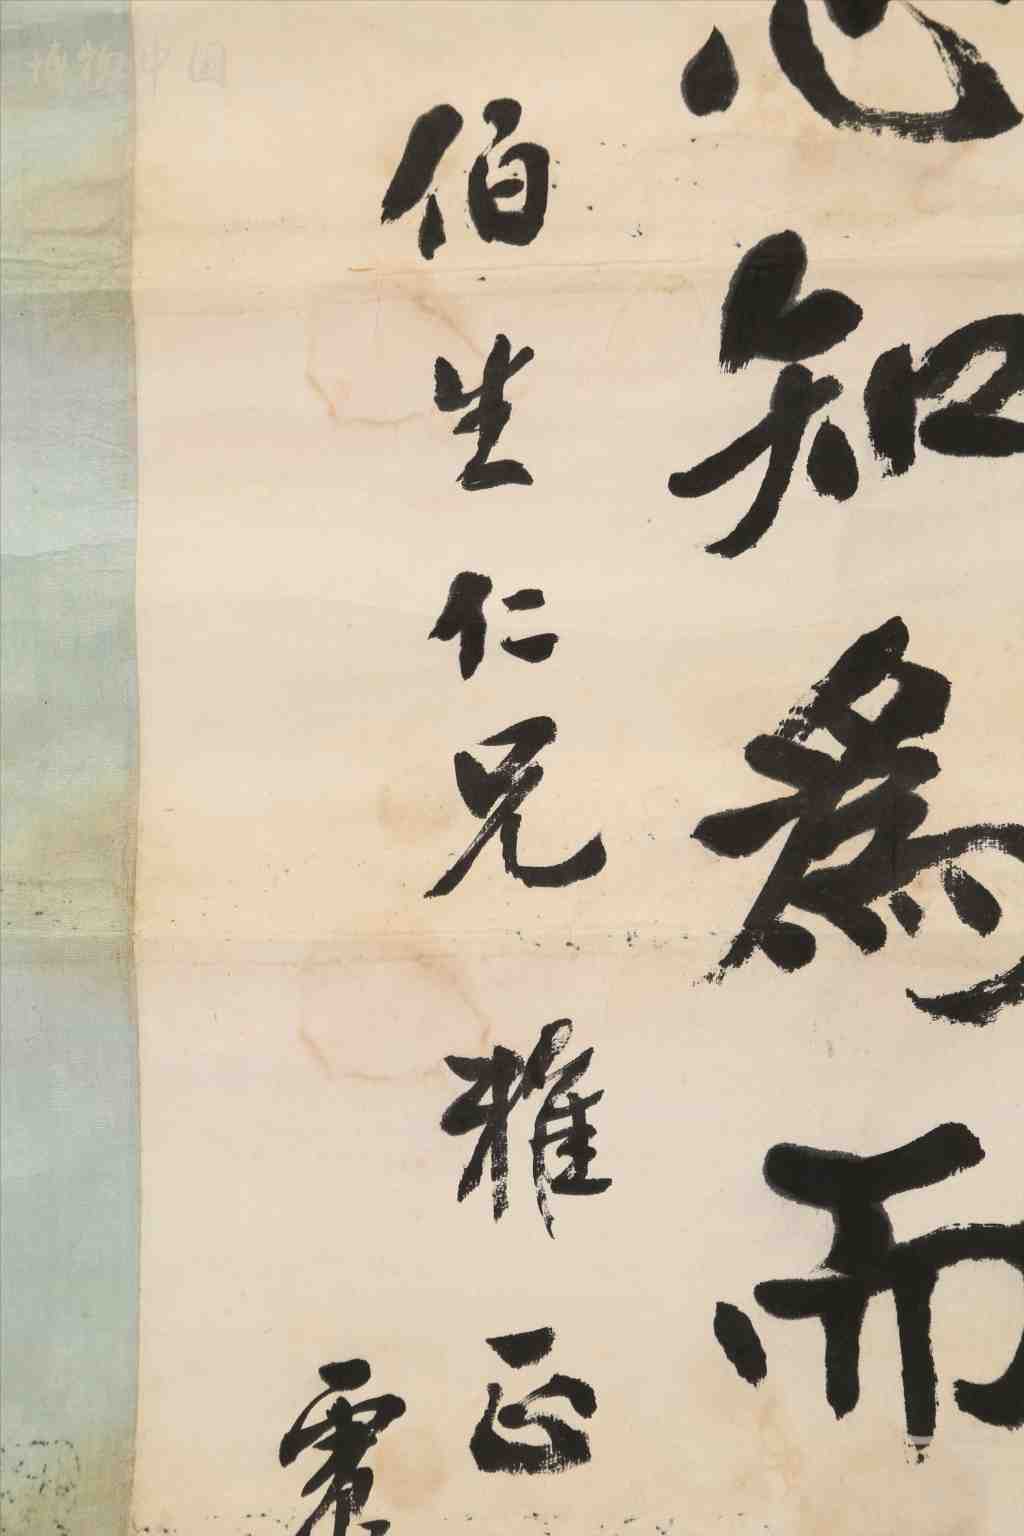 知為而
伯生仁兄雅正
博物中国